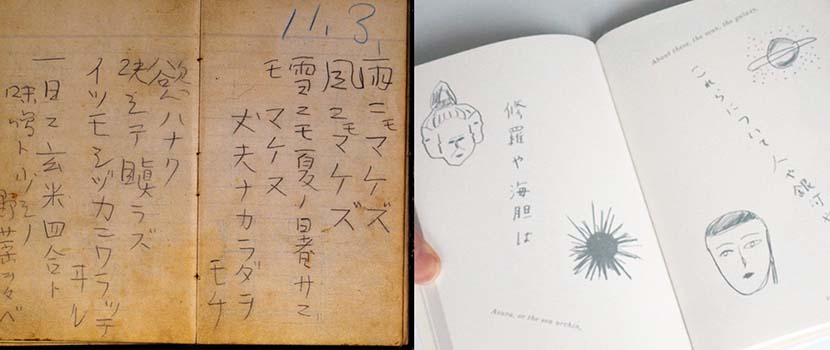 11.3.
雨ニモマケズ
風ニモマケズ
雪ニモ夏ノ暑サニ
モ マケヌ
丈夫ナカラダヲ
モチ
慾ハナク
決シテ瞋ラズ
イツモシヅカニワラッテ
ヰル
一日ニ玄米四合ト
味噌ト少シノ
野菜ヲタベ
About these, the men, the galaxy,
これらについて人や銀河や
修羅や海胆は
Asura, or the sea urchin,